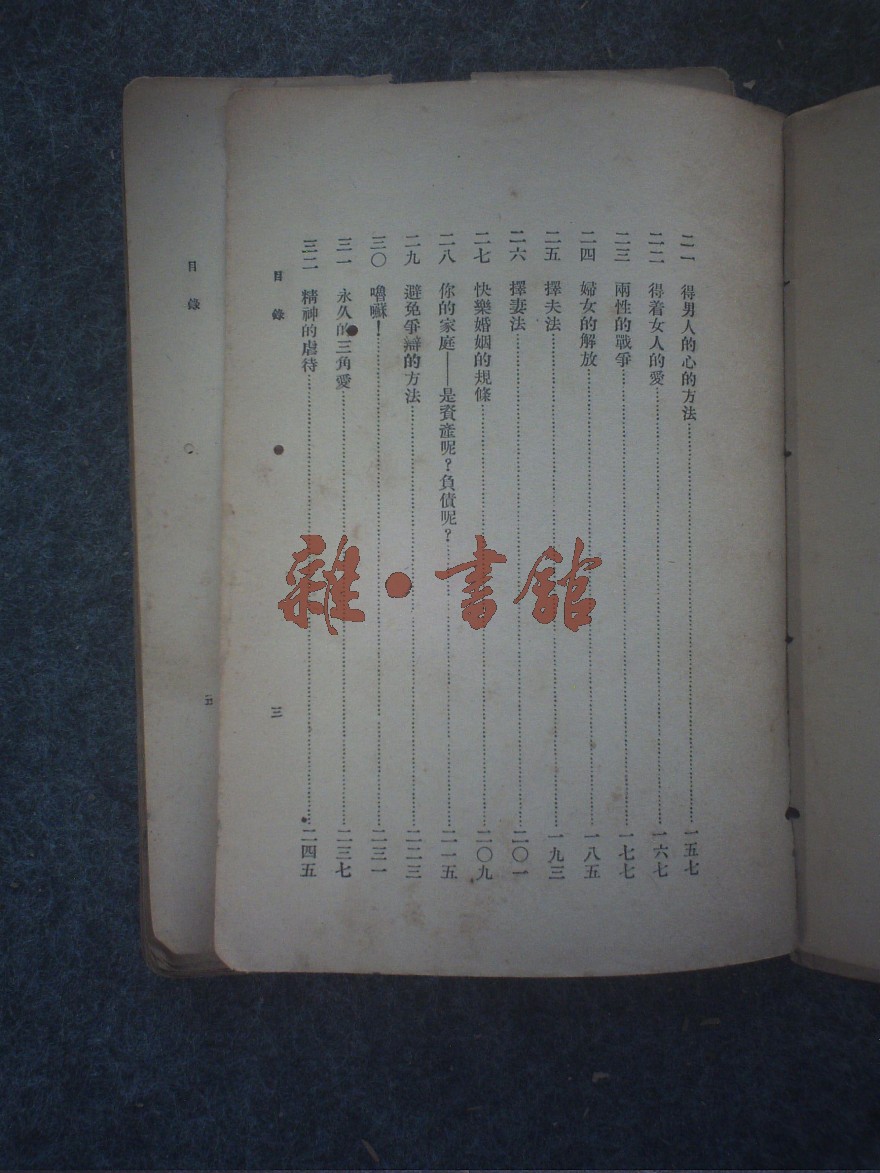 二一 得男人的心的方法 一五七
二二 得着女人的愛 一六七
二三 兩性的戰爭 一七七
二四 婦女的解放 一八五
二五 擇夫法 一九三
二六 擇妻法 二〇一
二七 快樂婚姻的規條 二〇九
二八 你的家庭——是資產呢？負債呢？ 二一五
二九 避免爭辯的方法 二二三
三〇 嚕囌！ 二三一
三一 永久的三角愛 二三七
三二 精神的虐待 二四五
目錄
三
目錄
雜·書館